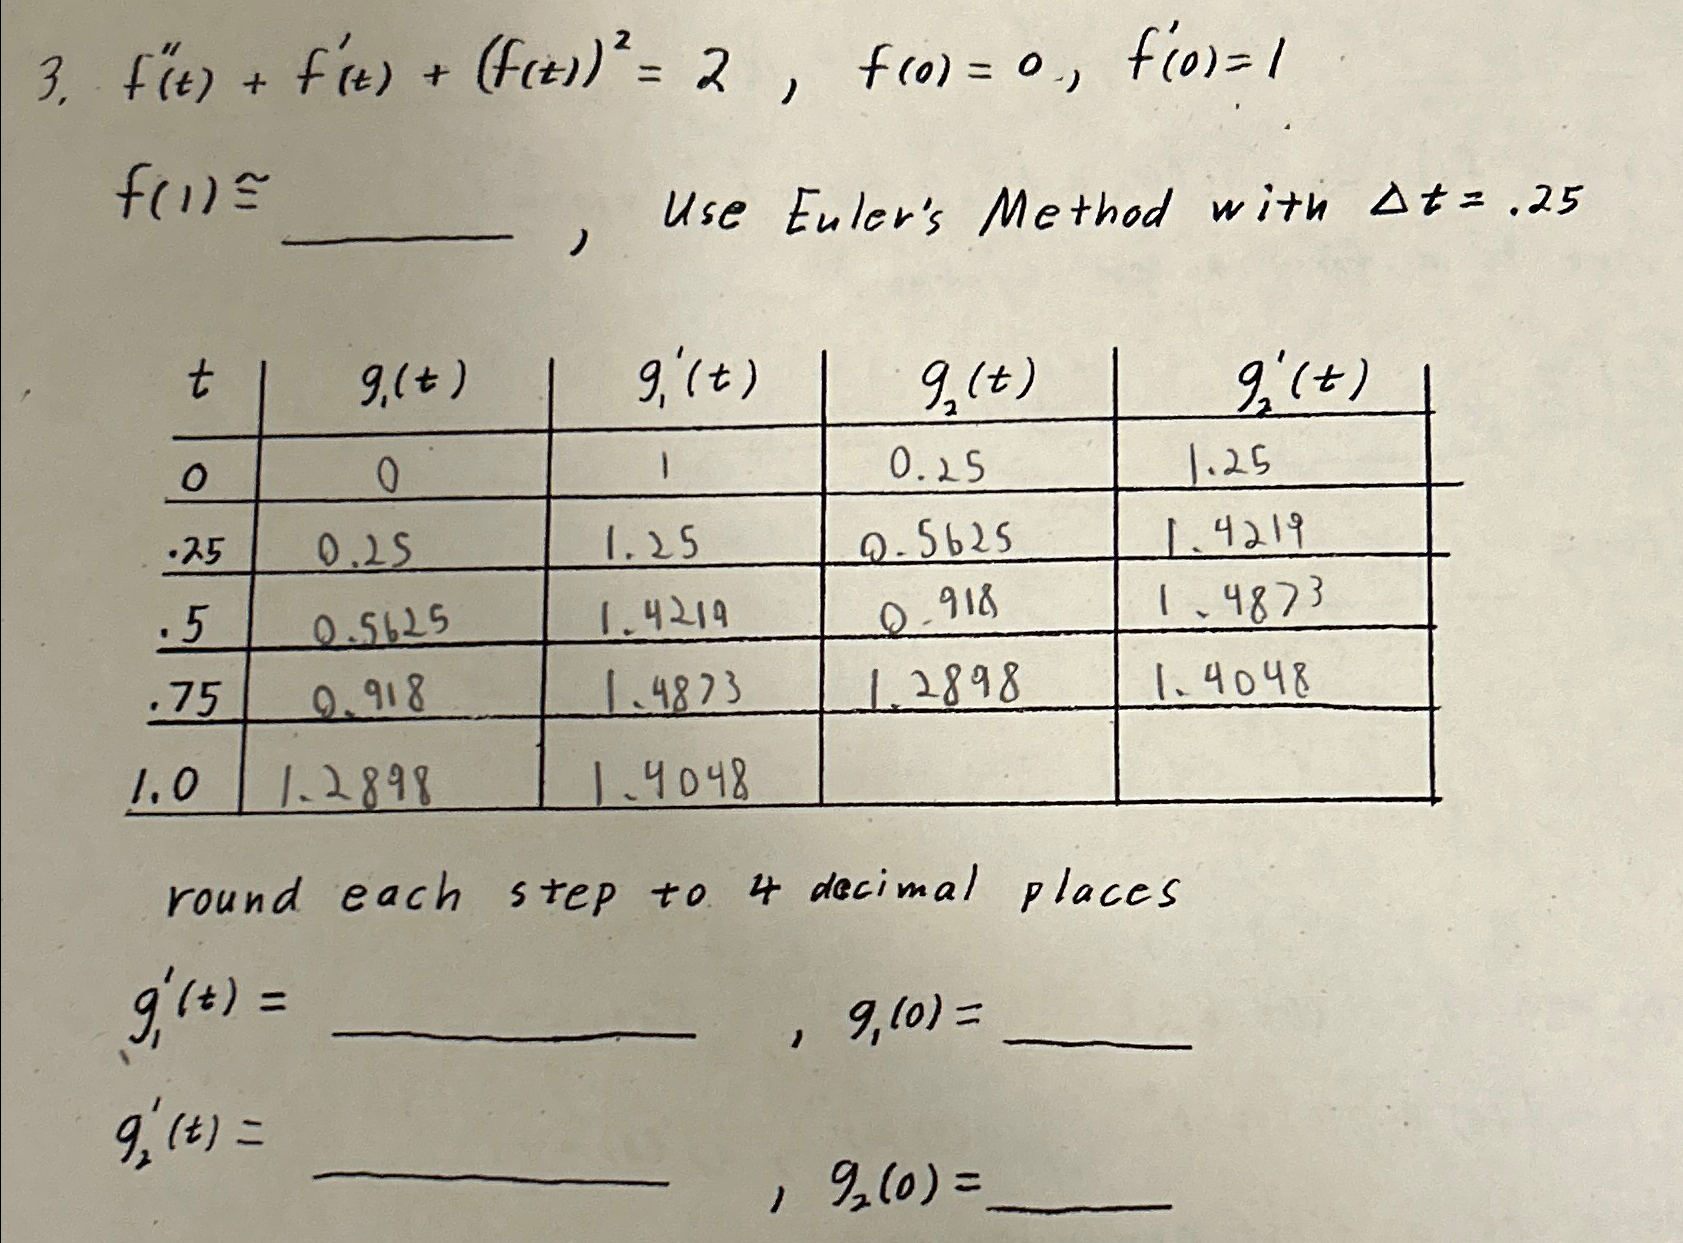 3. f''(t) + f'(t) + (f(t))² = 2 , f(0) = 0 , f'(0) = 1
f(1) ≅ ________ , Use Euler's Method with Δt = .25
t | g₁(t) | g₁'(t) | g₂(t) | g₂'(t)
0 | 0 | 1 | 0.25 | 1.25
.25 | 0.25 | 1.25 | 0.5625 | 1.4219
.5 | 0.5625 | 1.4219 | 0.918 | 1.4873
.75 | 0.918 | 1.4873 | 1.2898 | 1.4048
1.0 | 1.2898 | 1.4048
round each step to 4 decimal places
g₁'(t) = ________ , g₁(0) = ____
g₂'(t) = ________ , g₂(0) = ____